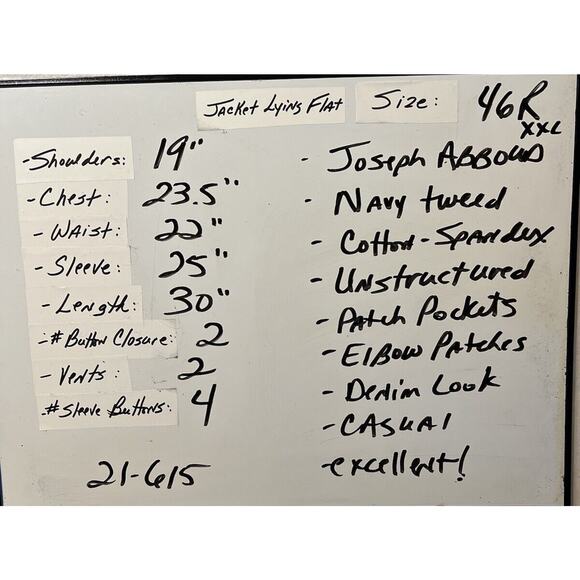 Jacket Lying Flat
Size: 46R
XXL
- Shoulders: 19"
- Chest: 23.5"
- Waist: 22"
- Sleeve: 25"
- Length: 30"
- # Button Closure: 2
- Vents: 2
# Sleeve Buttons: 4
21-615
- Joseph ABBOUD
- Navy tweed
- Cotton-Spandex
- Unstructured
- Patch Pockets
- Elbow Patches
- Denim Look
- CASUAl
- excellent!